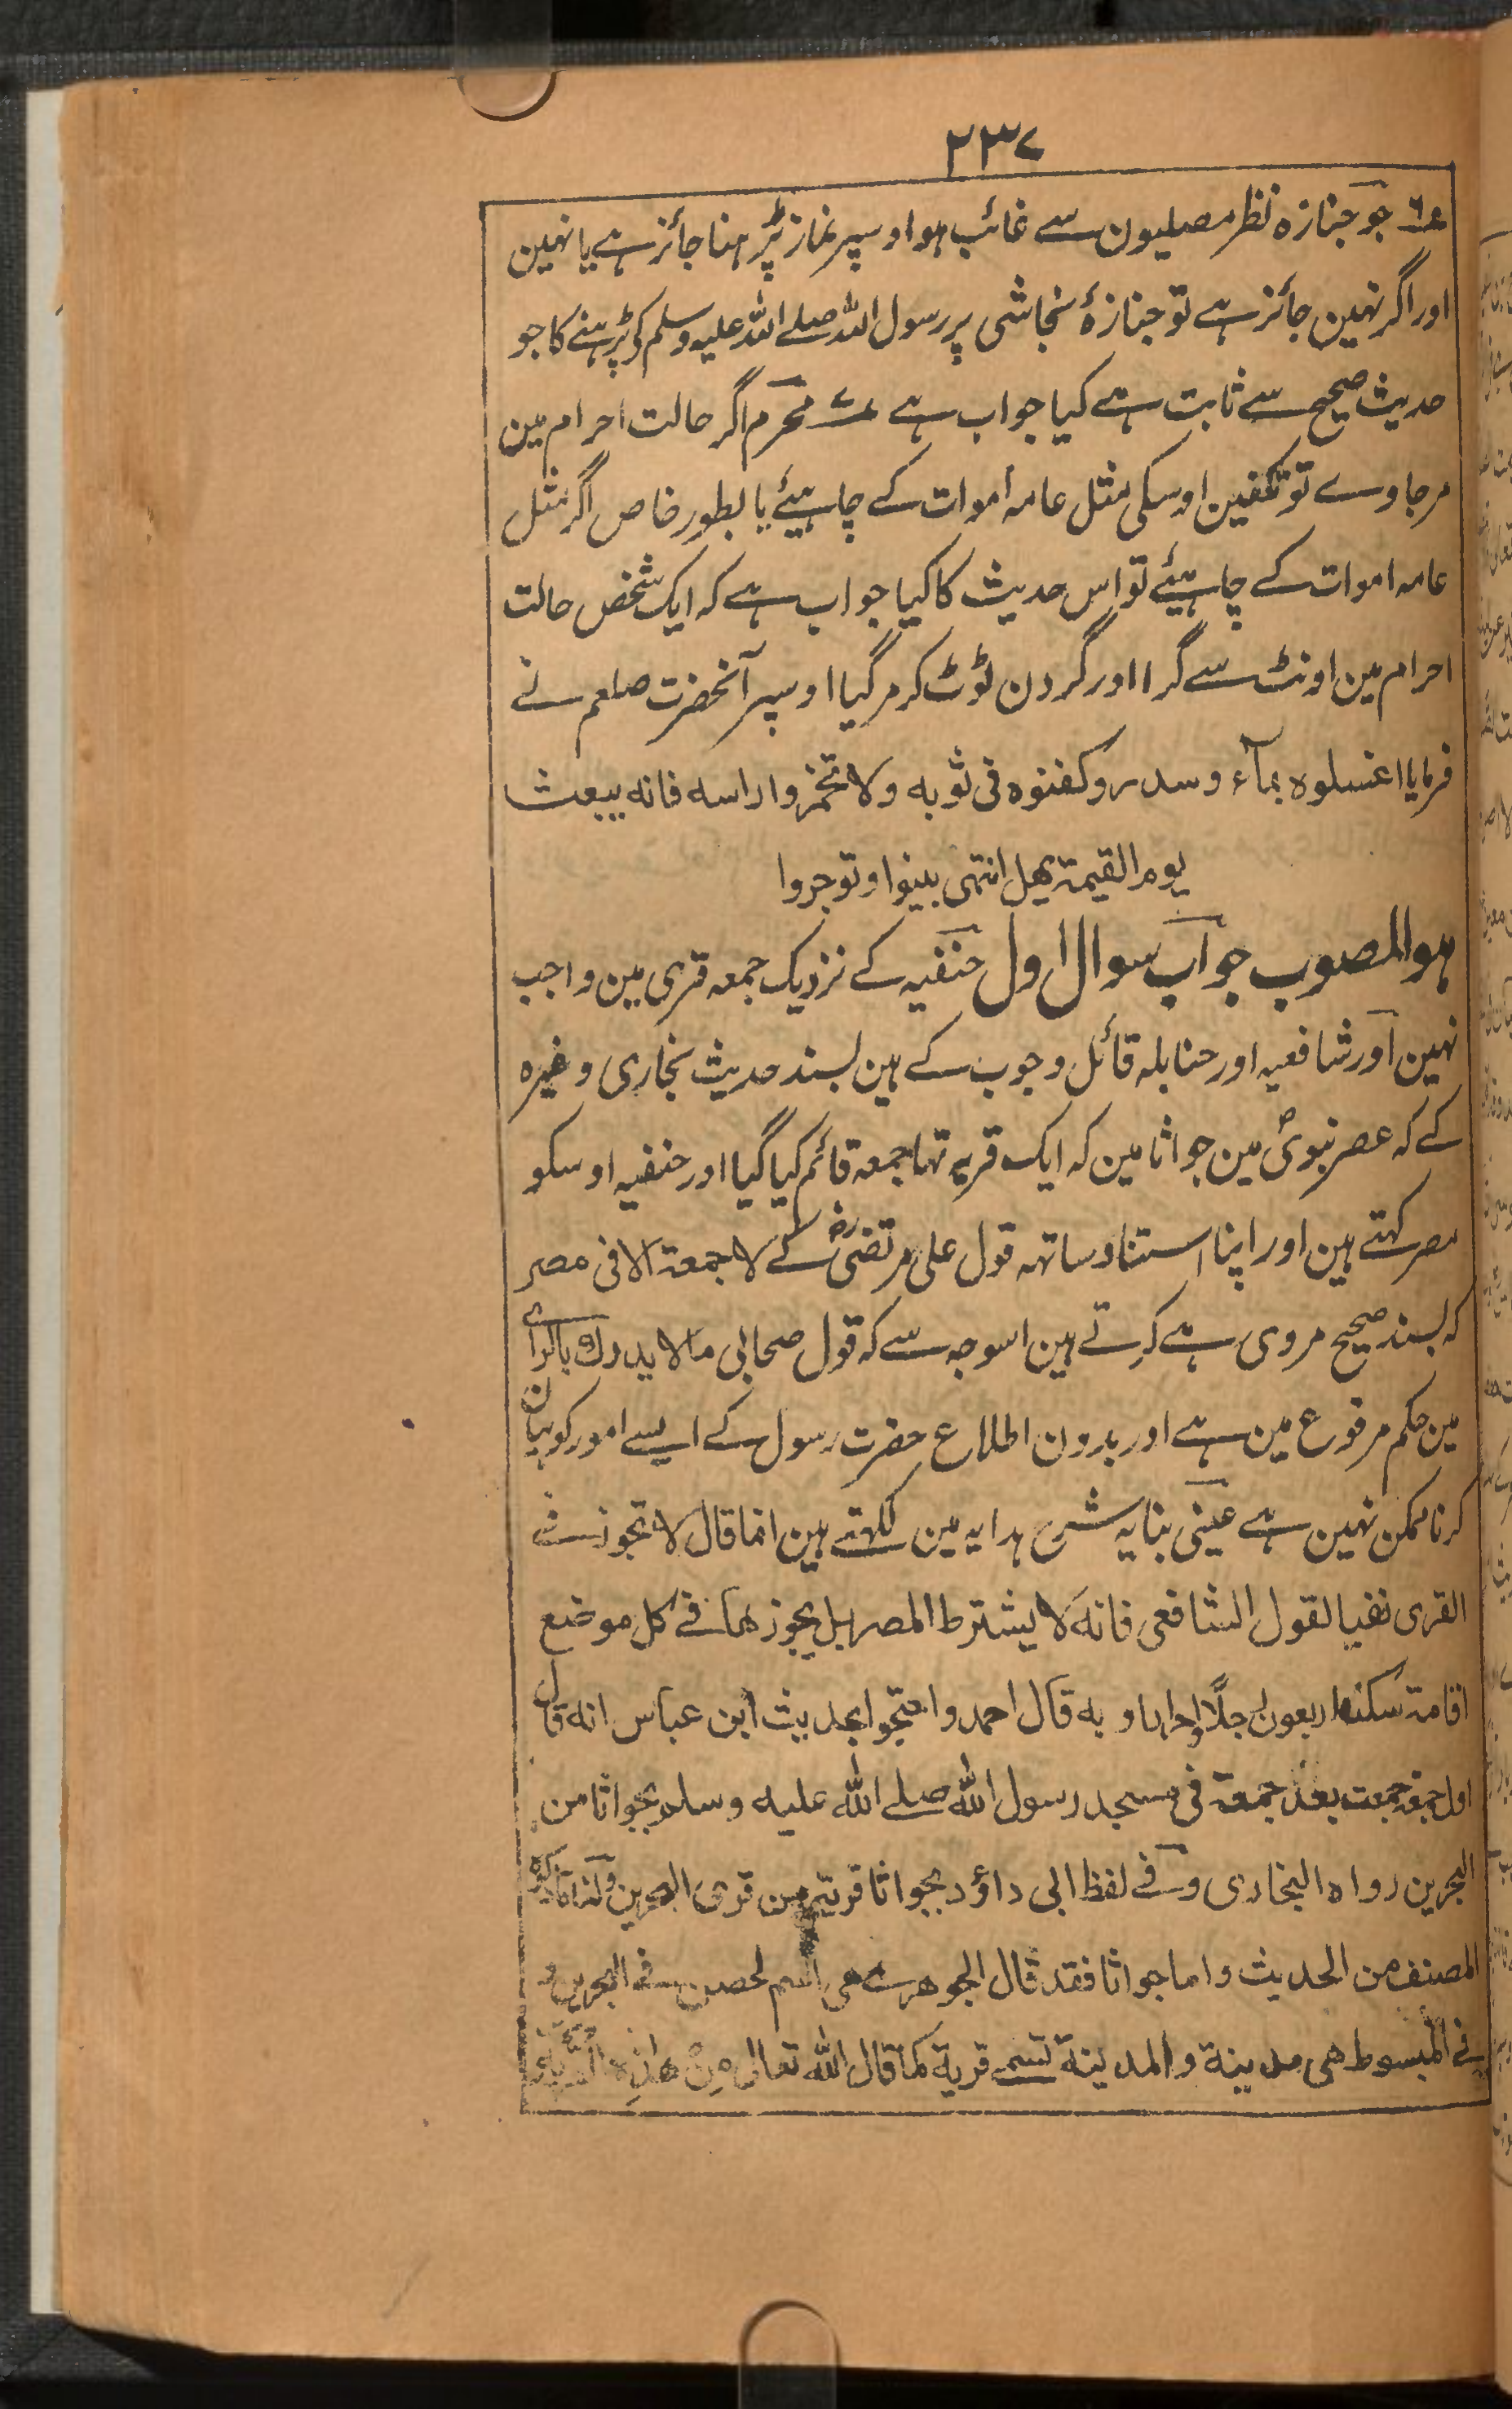 ۲۳۷
۶ جو جنازہ نظر مصلیون سے غائب ہو اوسپر نماز پڑہنا جائز ہے یا نہین
اور اگر نہین جائز ہے تو جنازۂ نجاشی پر رسول اللہ صلے اللہ علیہ وسلم کی پڑہنے کا جو
حدیث صحیح سے ثابت ہے کیا جواب ہے ۷ محرم اگر حالت احرام مین
مرجاوے تو تکفین اوسکی مثل عامہ اموات کے چاہیئے یا بطور خاص اگر مثل
عامہ اموات کے چاہیئے تو اس حدیث کا کیا جواب ہے کہ ایک شخص حالت
احرام مین اونٹ سے گرا اور گردن ٹوٹ کر مرگیا اوسپر آنحضرت صلعم نے
فرمایا اغسلوہ بمآء وسدر وکفنوہ فی ثوبہ ولا تخمروا راسہ فانہ یبعث
یوم القیمۃ یھل انتہی بینوا وتوجروا
ہو المصوب جواب سوال اول حنفیہ کے نزدیک جمعہ قری مین واجب
نہین اور شافعیہ اور حنابلہ قائل وجوب کے ہین بسند حدیث بخاری وغیرہ
کے کہ عصر نبویؐ مین جواثا مین کہ ایک قریہ تہا جمعہ قائم کیا گیا اور حنفیہ اوسکو
مصر کہتے ہین اور اپنا استناد ساتہہ قول علی مرتضیؓ کے لا جمعۃ الا فی مصر
کہ بسند صحیح مروی ہے کرتے ہین اسوجہ سے کہ قول صحابی ما لا یدرک بالراے
مین حکم مرفوع مین ہے اور بدون اطلاع حضرت رسول کے ایسے امور کو بیان
کرنا ممکن نہین ہے عینی بنایہ شرح ہدایہ مین لکہتے ہین انما قال لا تجوز فے
القری نفیا لقول الشافعی فانہ لا یشترط المصر بل یجوزھا فے کل موضع
اقامۃ سکنھا اربعون رجلًا احرارا وبہ قال احمد واحتجوا بحدیث ابن عباس انہ قال
اول جمعۃ جمعت بعد جمعۃ فی مسجد رسول اللہ صلے اللہ علیہ وسلم بجواثا من
البحرین رواہ البخاری وفے لفظ ابی داؤد بجواثا قریۃ من قری البحرین
المصنف من الحدیث واما جواثا فقد قال الجوھرے ھی اسم لحصن فے البحرین و
فے المبسوط ھی مدینۃ والمدینۃ تسمے قریۃ کما قال اللہ تعالی مِنْ ھٰذِہِ